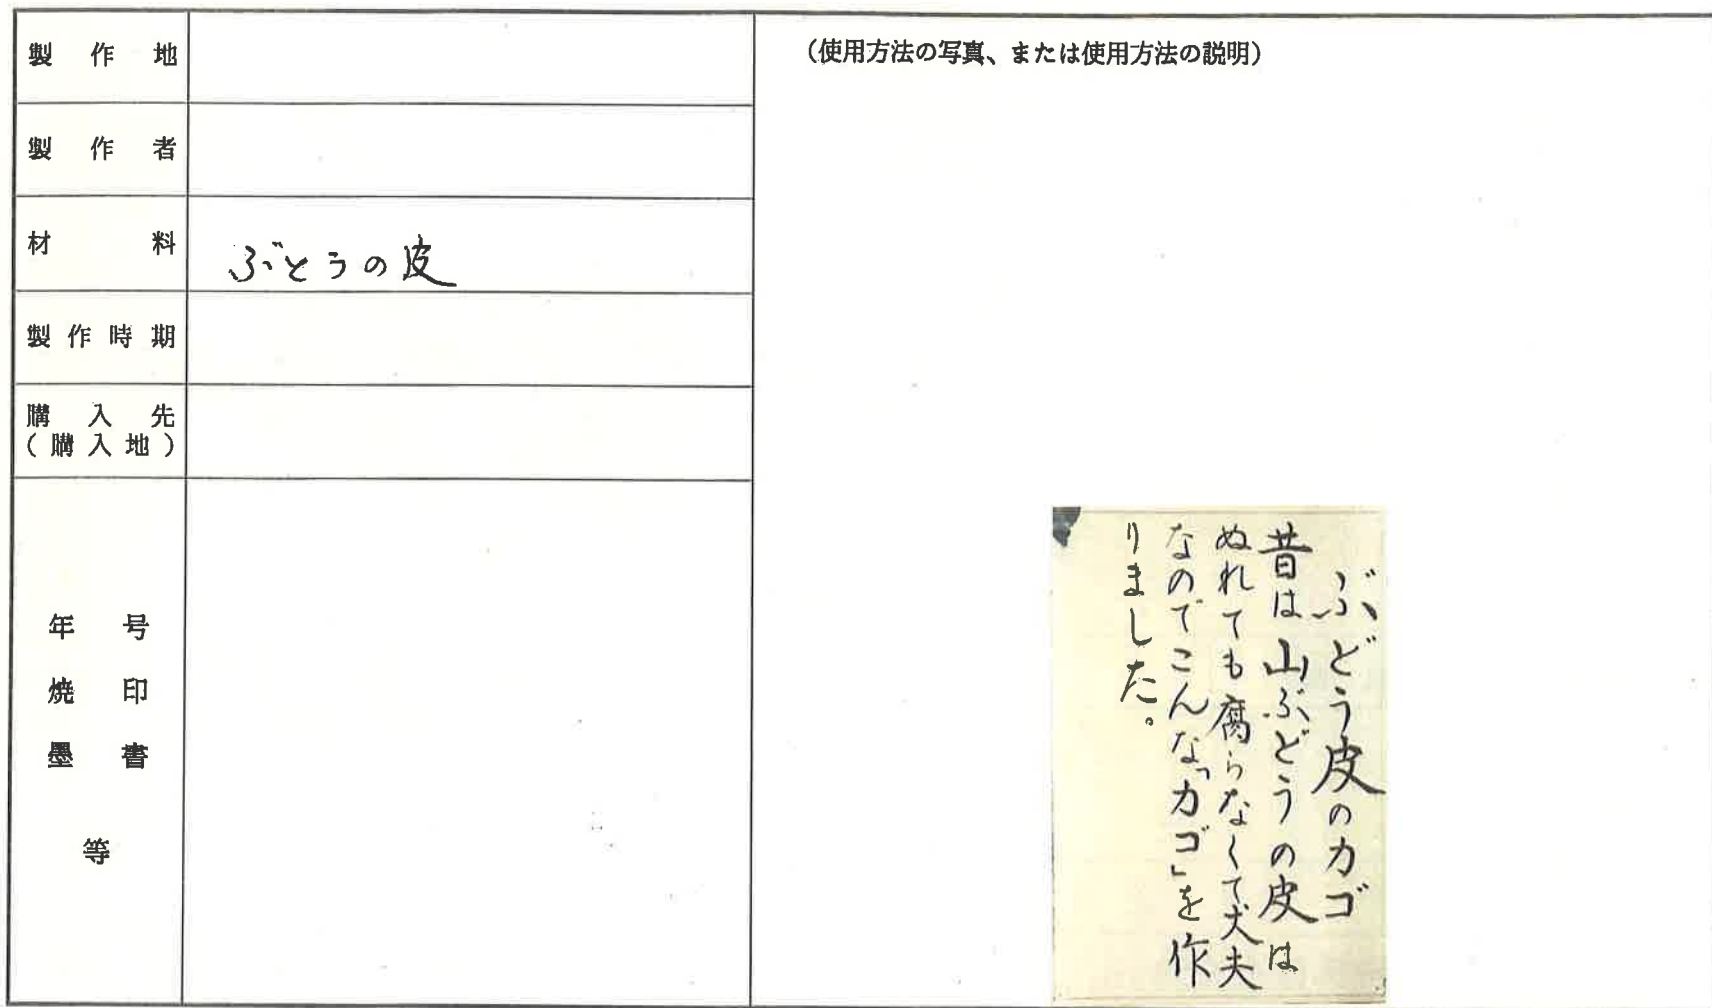 製作地
製作者
材料
ぶとうの皮
製作時期
購入先
(購入地)
年号
焼印
墨書
等
(使用方法の写真、または使用方法の説明)
ぶどう皮のカゴ
昔は山ぶどうの皮は
ぬれても腐らなくて丈夫
なのでこんな「カゴ」を作
りました。